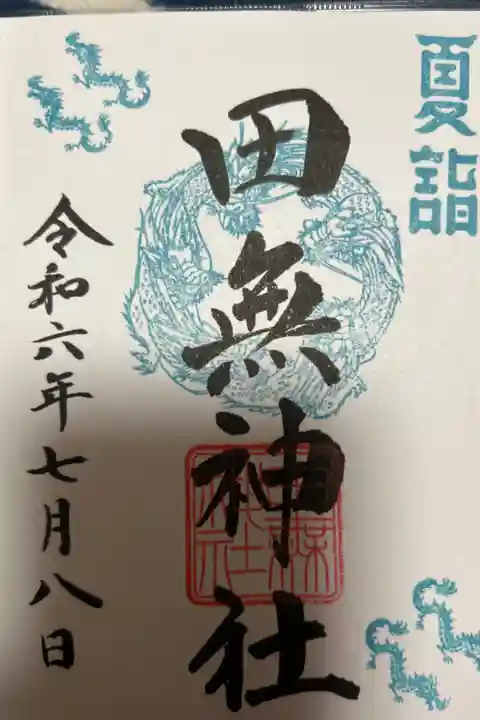 夏詣
田無神社
令和六年七月八日